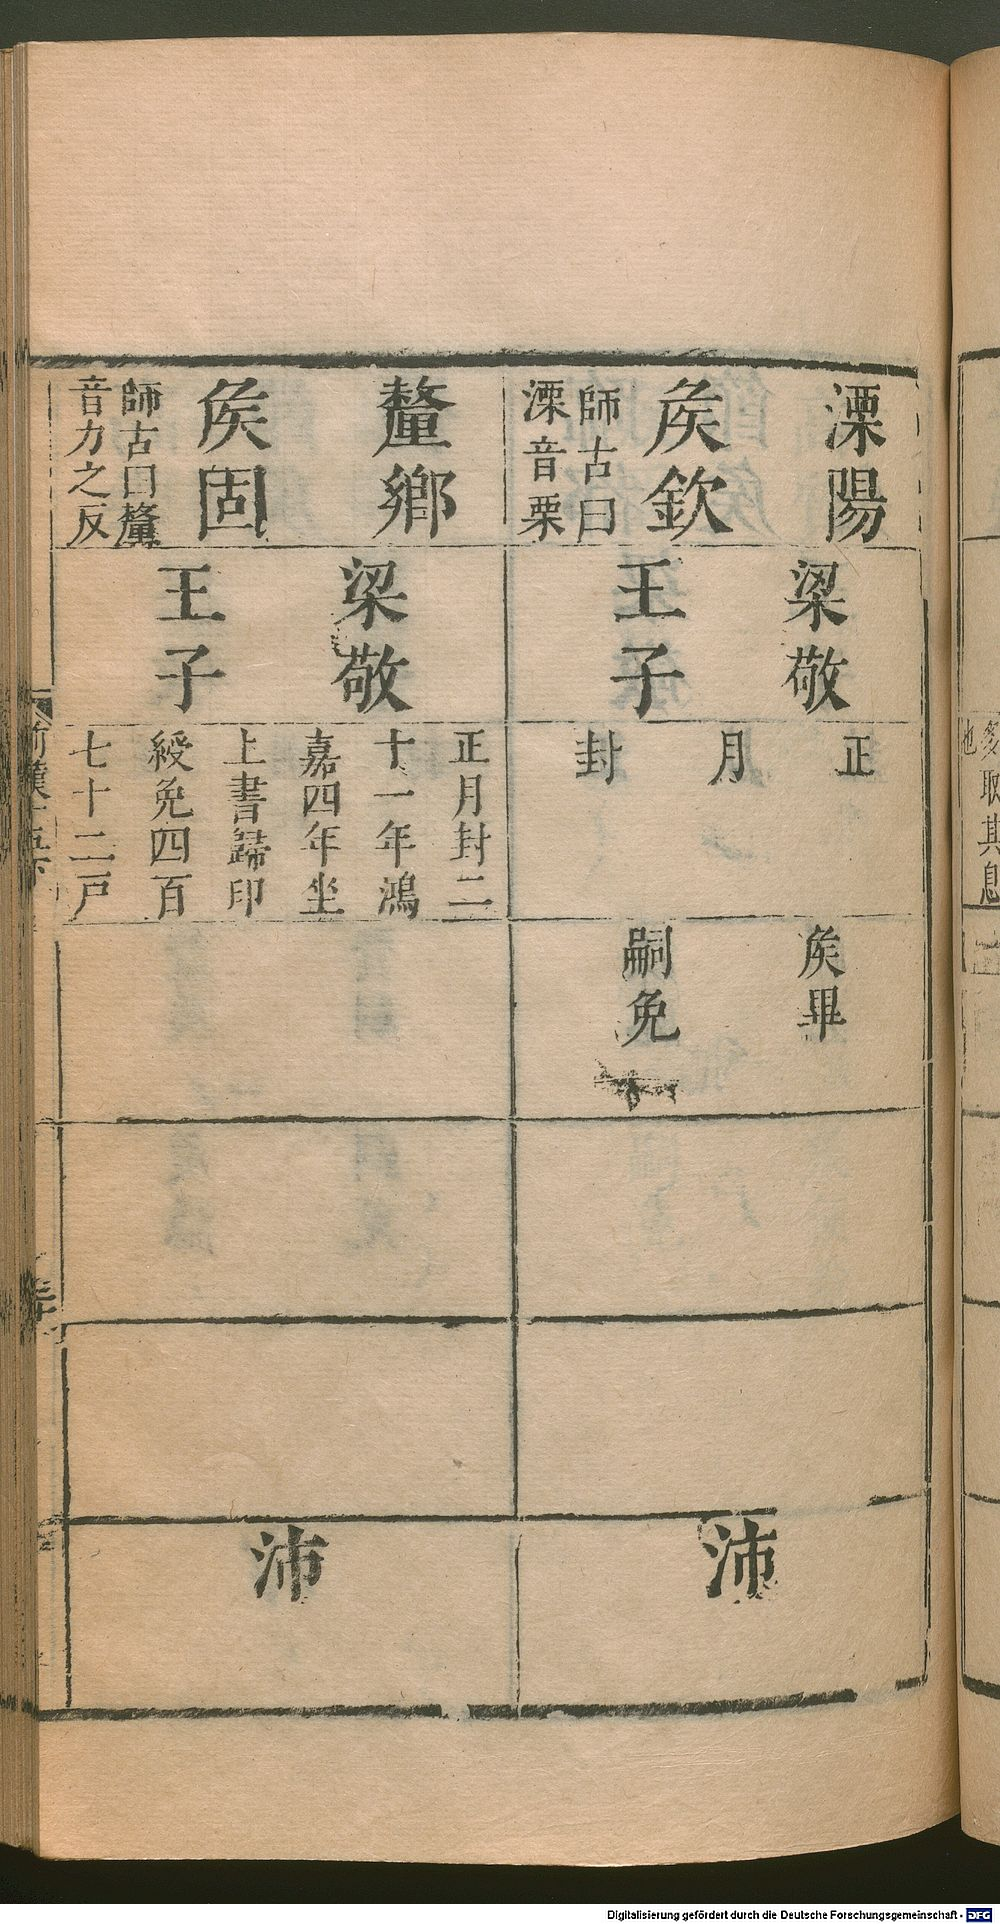 溧陽
矦欽
師古曰
溧音栗
梁敬
王子
正
月
封
矦畢
嗣免
沛
釐鄉
矦固
師古曰釐
音力之反
梁敬
王子
正月封二
十一年鴻
嘉四年坐
上書歸印
綬免四百
七十二戸
沛
取其息
Digitalisierung gefördert durch die Deutsche Forschungsgemeinschaft - DFG